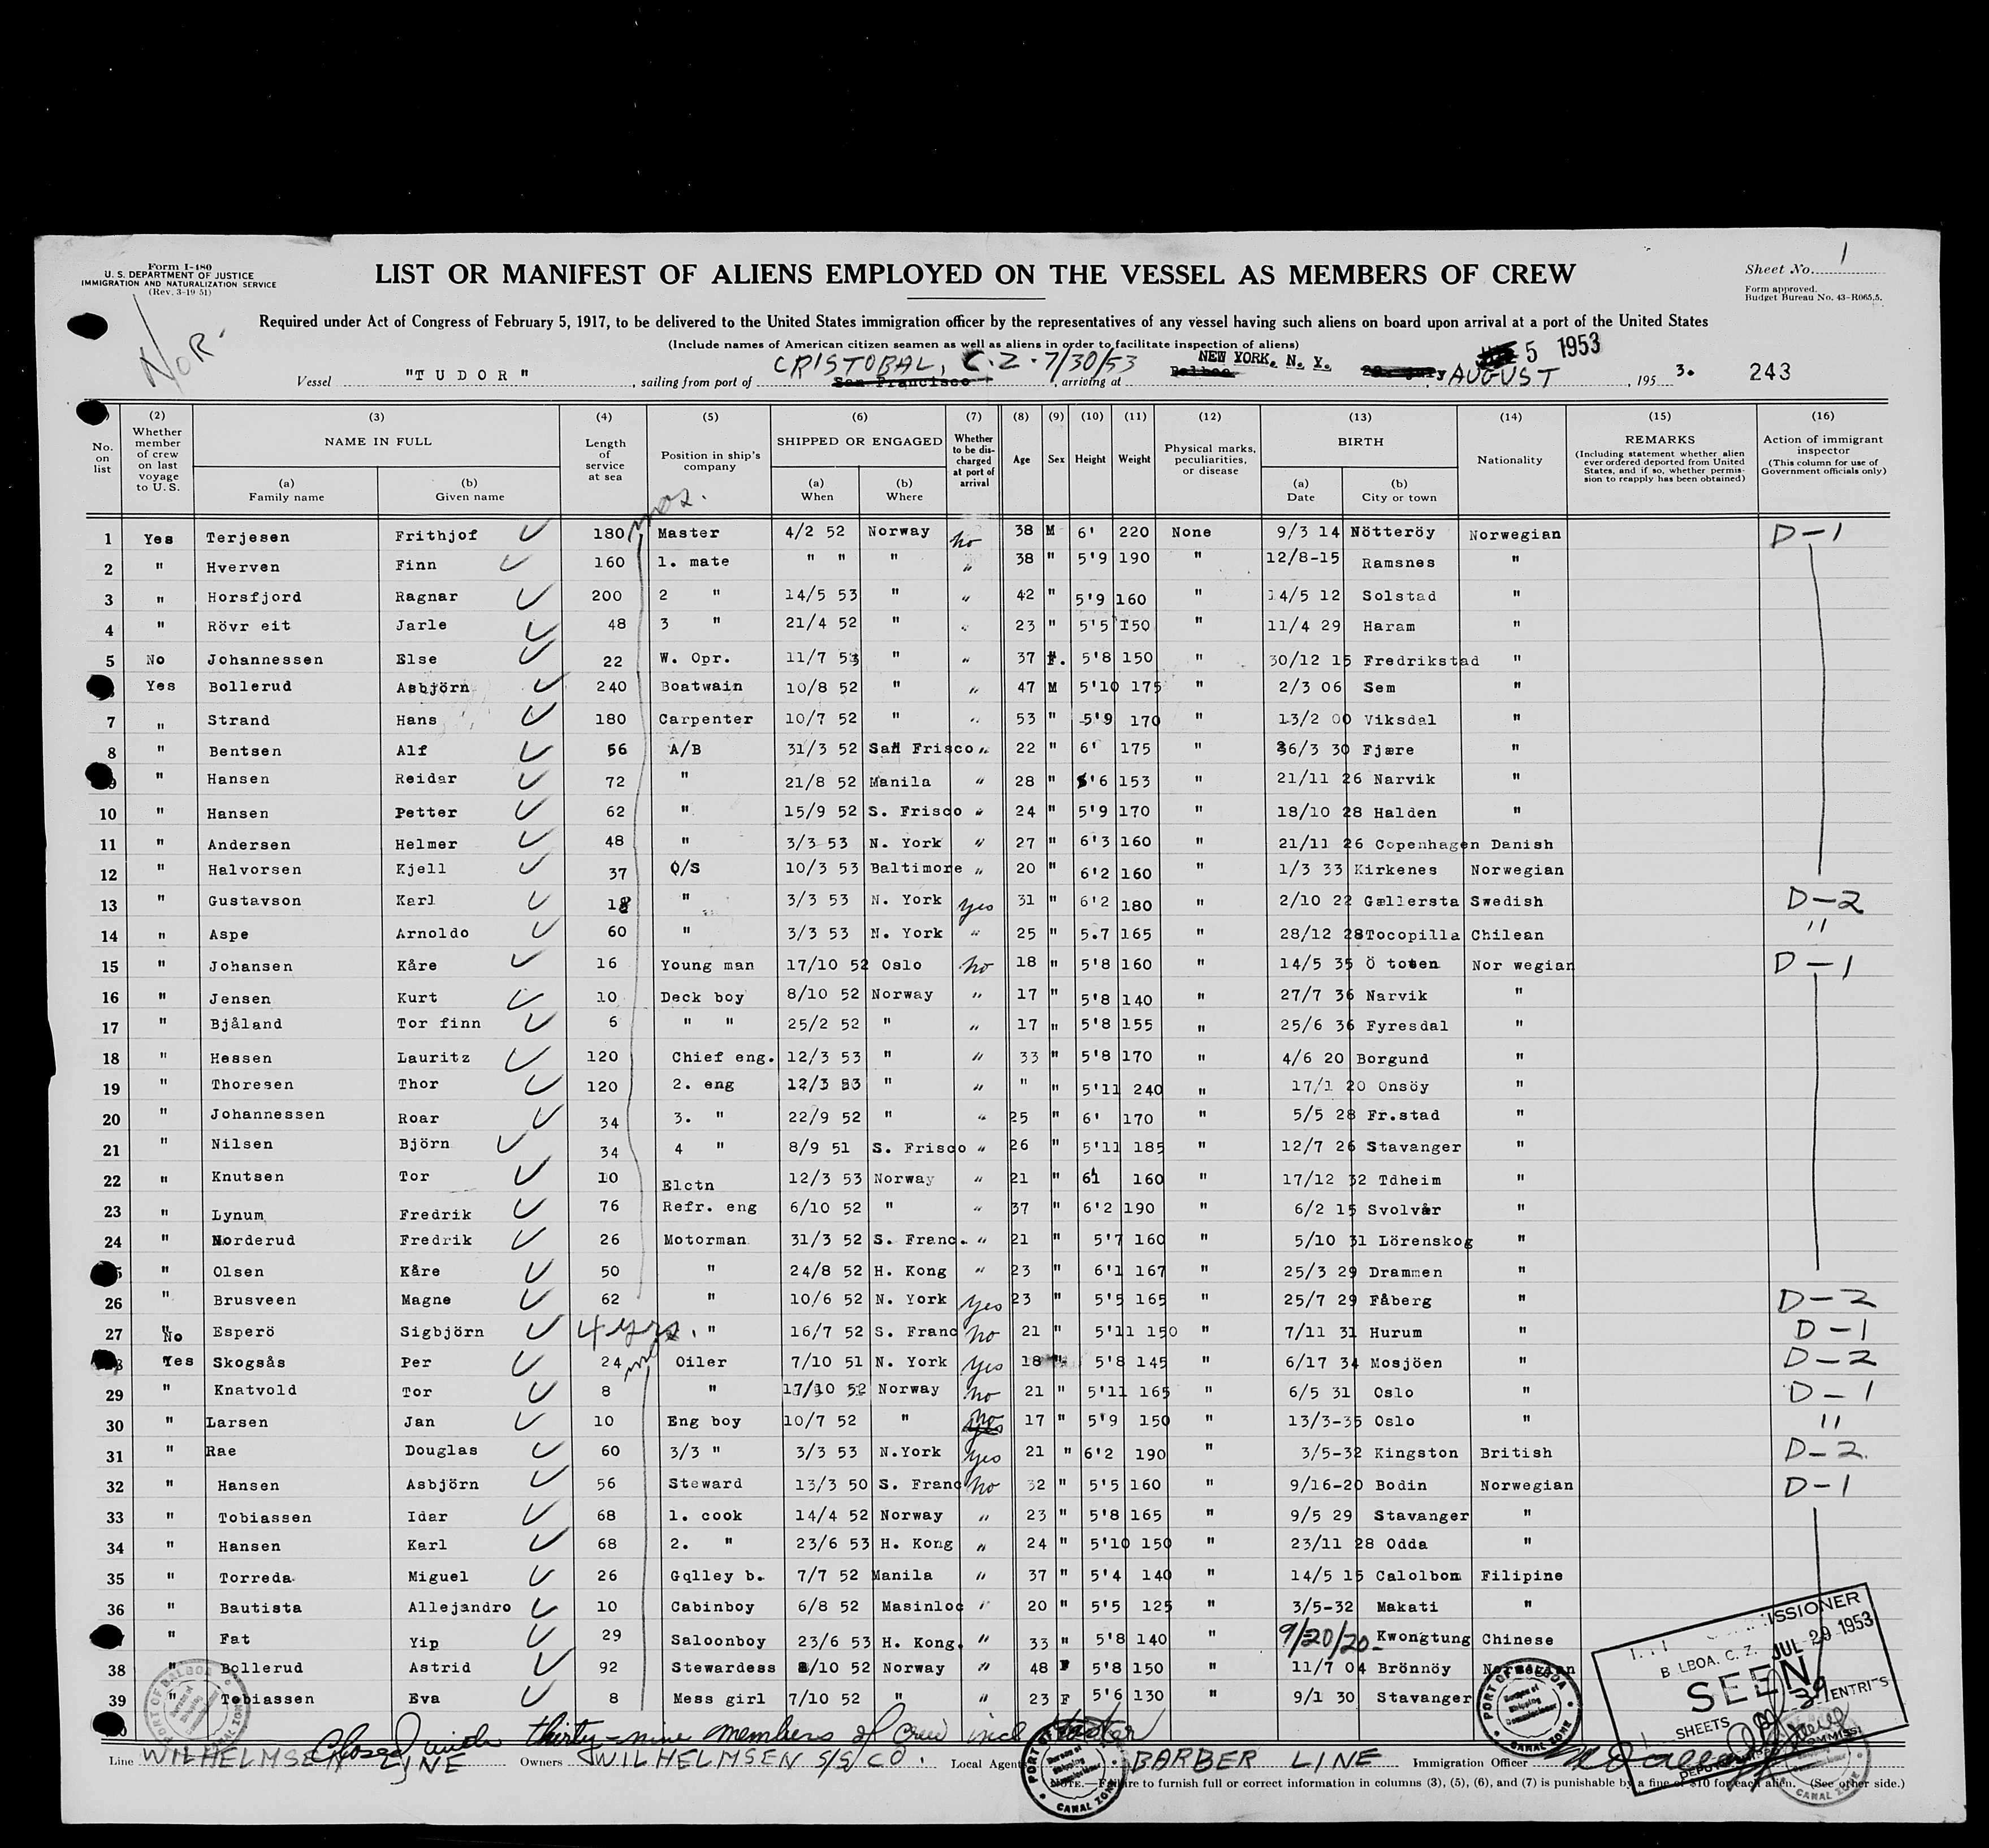 Form I-480
U. S. DEPARTMENT OF JUSTICE
IMMIGRATION AND NATURALIZATION SERVICE
(Rev. 3-19 51)
LIST OR MANIFEST OF ALIENS EMPLOYED ON THE VESSEL AS MEMBERS OF CREW
Sheet No. 1
Form approved.
Budget Bureau No. 43-R065.5.
NOR.
Required under Act of Congress of February 5, 1917, to be delivered to the United States immigration officer by the representatives of any vessel having such aliens on board upon arrival at a port of the United States
(Include names of American citizen seamen as well as aliens in order to facilitate inspection of aliens)
Vessel "T U D O R", sailing from port of San Francisco CRISTOBAL, C.Z. 7/30/53 arriving at Balboa NEW YORK, N. Y. AUGUST 5 1953, 195 3. 243
No. on list
(2) Whether member of crew on last voyage to U. S.
(3) NAME IN FULL (a) Family name (b) Given name
(4) Length of service at sea
(5) Position in ship's company
(6) SHIPPED OR ENGAGED (a) When (b) Where
(7) Whether to be discharged at port of arrival
(8) Age
(9) Sex
(10) Height
(11) Weight
(12) Physical marks, peculiarities, or disease
(13) BIRTH (a) Date (b) City or town
(14) Nationality
(15) REMARKS (Including statement whether alien ever ordered deported from United States, and if so, whether permission to reapply has been obtained)
(16) Action of immigrant inspector (This column for use of Government officials only)
mos.
1 Yes Terjesen Frithjof 180 Master 4/2 52 Norway No 38 M 6' 220 None 9/3 14 Nötteröy Norwegian D-1
2 " Hverven Finn 160 1. mate " " " " 38 " 5'9 190 " 12/8-15 Ramsnes "
3 " Horsfjord Ragnar 200 2 " 14/5 53 " " 42 " 5'9 160 " 14/5 12 Solstad "
4 " Rövr eit Jarle 48 3 " 21/4 52 " " 23 " 5'5 150 " 11/4 29 Haram "
5 No Johannessen Else 22 W. Opr. 11/7 53 " " 37 F. 5'8 150 " 30/12 15 Fredrikstad "
Yes Bollerud Asbjörn 240 Boatwain 10/8 52 " " 47 M 5'10 175 " 2/3 06 Sem "
7 " Strand Hans 180 Carpenter 10/7 52 " " 53 " 5'9 170 " 13/2 00 Viksdal "
8 " Bentsen Alf 56 A/B 31/3 52 San Frisco " 22 " 6' 175 " 36/3 30 Fjære "
9 " Hansen Reidar 72 " 21/8 52 Manila " 28 " 5'6 153 " 21/11 26 Narvik "
10 " Hansen Petter 62 " 15/9 52 S. Frisco " 24 " 5'9 170 " 18/10 28 Halden "
11 " Andersen Helmer 48 " 3/3 53 N. York " 27 " 6'3 160 " 21/11 26 Copenhagen Danish
12 " Halvorsen Kjell 37 O/S 10/3 53 Baltimore " 20 " 6'2 160 " 1/3 33 Kirkenes Norwegian
13 " Gustavson Karl 18 " 3/3 53 N. York Yes 31 " 6'2 180 " 2/10 22 Gællersta Swedish D-2
14 " Aspe Arnoldo 60 " 3/3 53 N. York " 25 " 5.7 165 " 28/12 28 Tocopilla Chilean "
15 " Johansen Kåre 16 Young man 17/10 52 Oslo No 18 " 5'8 160 " 14/5 35 Ö toten Nor wegian D-1
16 " Jensen Kurt 10 Deck boy 8/10 52 Norway " 17 " 5'8 140 " 27/7 36 Narvik "
17 " Bjåland Tor finn 6 " " 25/2 52 " " 17 " 5'8 155 " 25/6 36 Fyresdal "
18 " Hessen Lauritz 120 Chief eng. 12/3 53 " " 33 " 5'8 170 " 4/6 20 Borgund "
19 " Thoresen Thor 120 2. eng 12/3 53 " " " " 5'11 240 " 17/1 20 Onsöy "
20 " Johannessen Roar 34 3. " 22/9 52 " " 25 " 6' 170 " 5/5 28 Fr.stad "
21 " Nilsen Björn 34 4 " 8/9 51 S. Frisco " 26 " 5'11 185 " 12/7 26 Stavanger "
22 " Knutsen Tor 10 Elctn 12/3 53 Norway " 21 " 6'1 160 " 17/12 32 Tdheim "
23 " Lynum Fredrik 76 Refr. eng 6/10 52 " " 37 " 6'2 190 " 6/2 15 Svolvår "
24 " Norderud Fredrik 26 Motorman 31/3 52 S. Franc. " 21 " 5'7 160 " 5/10 31 Lörenskog "
" Olsen Kåre 50 " 24/8 52 H. Kong " 23 " 6'1 167 " 25/3 29 Drammen "
26 " Brusveen Magne 62 " 10/6 52 N. York Yes 23 " 5'5 165 " 25/7 29 Fåberg " D-2
27 No Esperö Sigbjörn 4 yrs. " 16/7 52 S. Franc No 21 " 5'11 150 " 7/11 31 Hurum " D-1
Yes Skogsås Per 24 m Oiler 7/10 51 N. York Yes 18 " 5'8 145 " 6/17 34 Mosjöen " D-2
29 " Knatvold Tor 8 " 17/10 52 Norway No 21 " 5'11 165 " 6/5 31 Oslo " D-1
30 " Larsen Jan 10 Eng boy 10/7 52 " No 17 " 5'9 150 " 13/3-35 Oslo " "
31 " Rae Douglas 60 3/3 " 3/3 53 N.York Yes 21 " 6'2 190 " 3/5-32 Kingston British D-2.
32 " Hansen Asbjörn 56 Steward 13/3 50 S. Franc No 32 " 5'5 160 " 9/16-20 Bodin Norwegian D-1
33 " Tobiassen Idar 68 1. cook 14/4 52 Norway " 23 " 5'8 165 " 9/5 29 Stavanger "
34 " Hansen Karl 68 2. " 23/6 53 H. Kong " 24 " 5'10 150 " 23/11 28 Odda "
35 " Torreda Miguel 26 Gqlley b. 7/7 52 Manila " 37 " 5'4 140 " 14/5 15 Calolbon Filipine
36 " Bautista Allejandro 10 Cabinboy 6/8 52 Masinloc " 20 " 5'5 125 " 3/5-32 Makati "
" Fat Yip 29 Saloonboy 23/6 53 H. Kong. " 33 " 5'8 140 " 9/20/20 Kwongtung Chinese
38 " Bollerud Astrid 92 Stewardess 8/10 52 Norway " 48 F 5'8 150 " 11/7 04 Brönnöy Norwegian
39 " Tobiassen Eva 8 Mess girl 7/10 52 " " 23 F 5'6 130 " 9/1 30 Stavanger
BALBOA, C. Z. JUL 29 1953
SEEN
SHEETS 39 ENTRIES
PORT OF BALBOA Bureau of Shipping Commissioner CANAL ZONE
Closed with thirty-nine members of crew incl Master
Line WILHELMSEN LINE Owners WILHELMSEN S/S CO. Local Agent BARBER LINE Immigration Officer
NOTE.—Failure to furnish full or correct information in columns (3), (5), (6), and (7) is punishable by a fine of $10 for each alien. (See other side.)